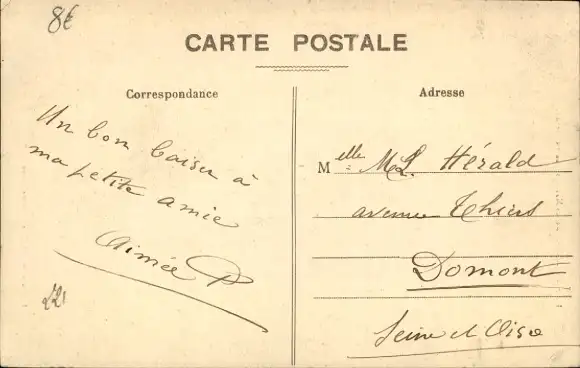 8€
CARTE POSTALE
Correspondance
Un bon baiser à
ma petite amie
Aimée P
221
Adresse
Melle M.L. Hérald
avenue Thiers
Domont
Seine et Oise